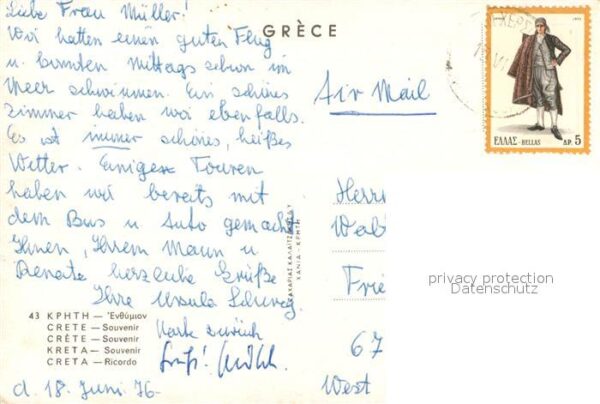 Liebe Frau Müller!
Wir hatten einen guten Flug
u. konnten mittags schon im
Meer schwimmen. Ein schönes
Zimmer haben wir ebenfalls.
Es ist immer schönes, heißes
Wetter. Einige Touren
haben wir bereits mit
dem Bus u. Auto gemacht
Ihnen, Ihrem Mann u.
Renate herzliche Grüße
Ihre Ursula
Karte zurück
Gruß!
d. 18. Juni 76-
GRÈCE
Air Mail
ΕΛΛΑΣ-HELLAS ΔΡ. 5
Herrn
Frie
67
West
ΖΑΧΑΡΙΑΣ ΚΑΛΑΪΤΖ
ΧΑΝΙΑ - ΚΡΗΤΗ
43 ΚΡΗΤΗ — Ἐνθύμιον
CRETE — Souvenir
CRÈTE — Souvenir
KRETA — Souvenir
CRETA — Ricordo
privacy protection
Datenschutz